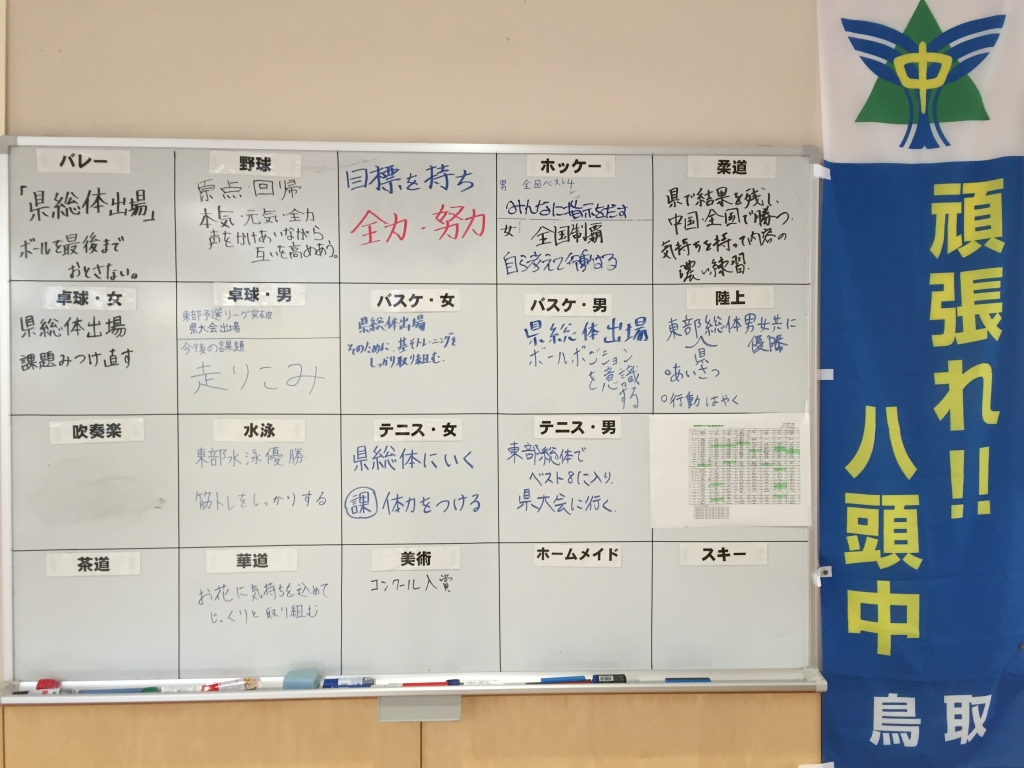 バレー
「県総体出場」
ボールを最後まで
おとさない。
野球
原点・回帰
本気・元気・全力
声をかけあいながら
互いを高めあう。
目標を持ち
全力・努力
ホッケー
男 全国ベスト4
みんなに指示をだす
女 全国制覇
自ら考えて行動する
柔道
県で結果を残し、
中国・全国で勝つ。
気持ちを持って内容の
濃い練習
卓球・女
県総体出場
課題みつけ直す
卓球・男
東部予選リーグ突破
県大会出場
今後の課題
走りこみ
バスケ・女
県総体出場
そのために、基そトレーニングを
しっかり取り組む.
バスケ・男
県総体出場
ボールポジション
を意識
する
陸上
東部総体男女共に
優勝
県
○あいさつ
○行動はやく
吹奏楽
水泳
東部水泳優勝
筋トレをしっかりする
テニス・女
県総体にいく
課 体力をつける
テニス・男
東部総体で
ベスト8に入り、
県大会に行く.
茶道
華道
お花に気持ちを込めて
じっくりと取り組む
美術
コンクール入賞
ホームメイド
スキー
中
頑張れ!!
八頭中
鳥取